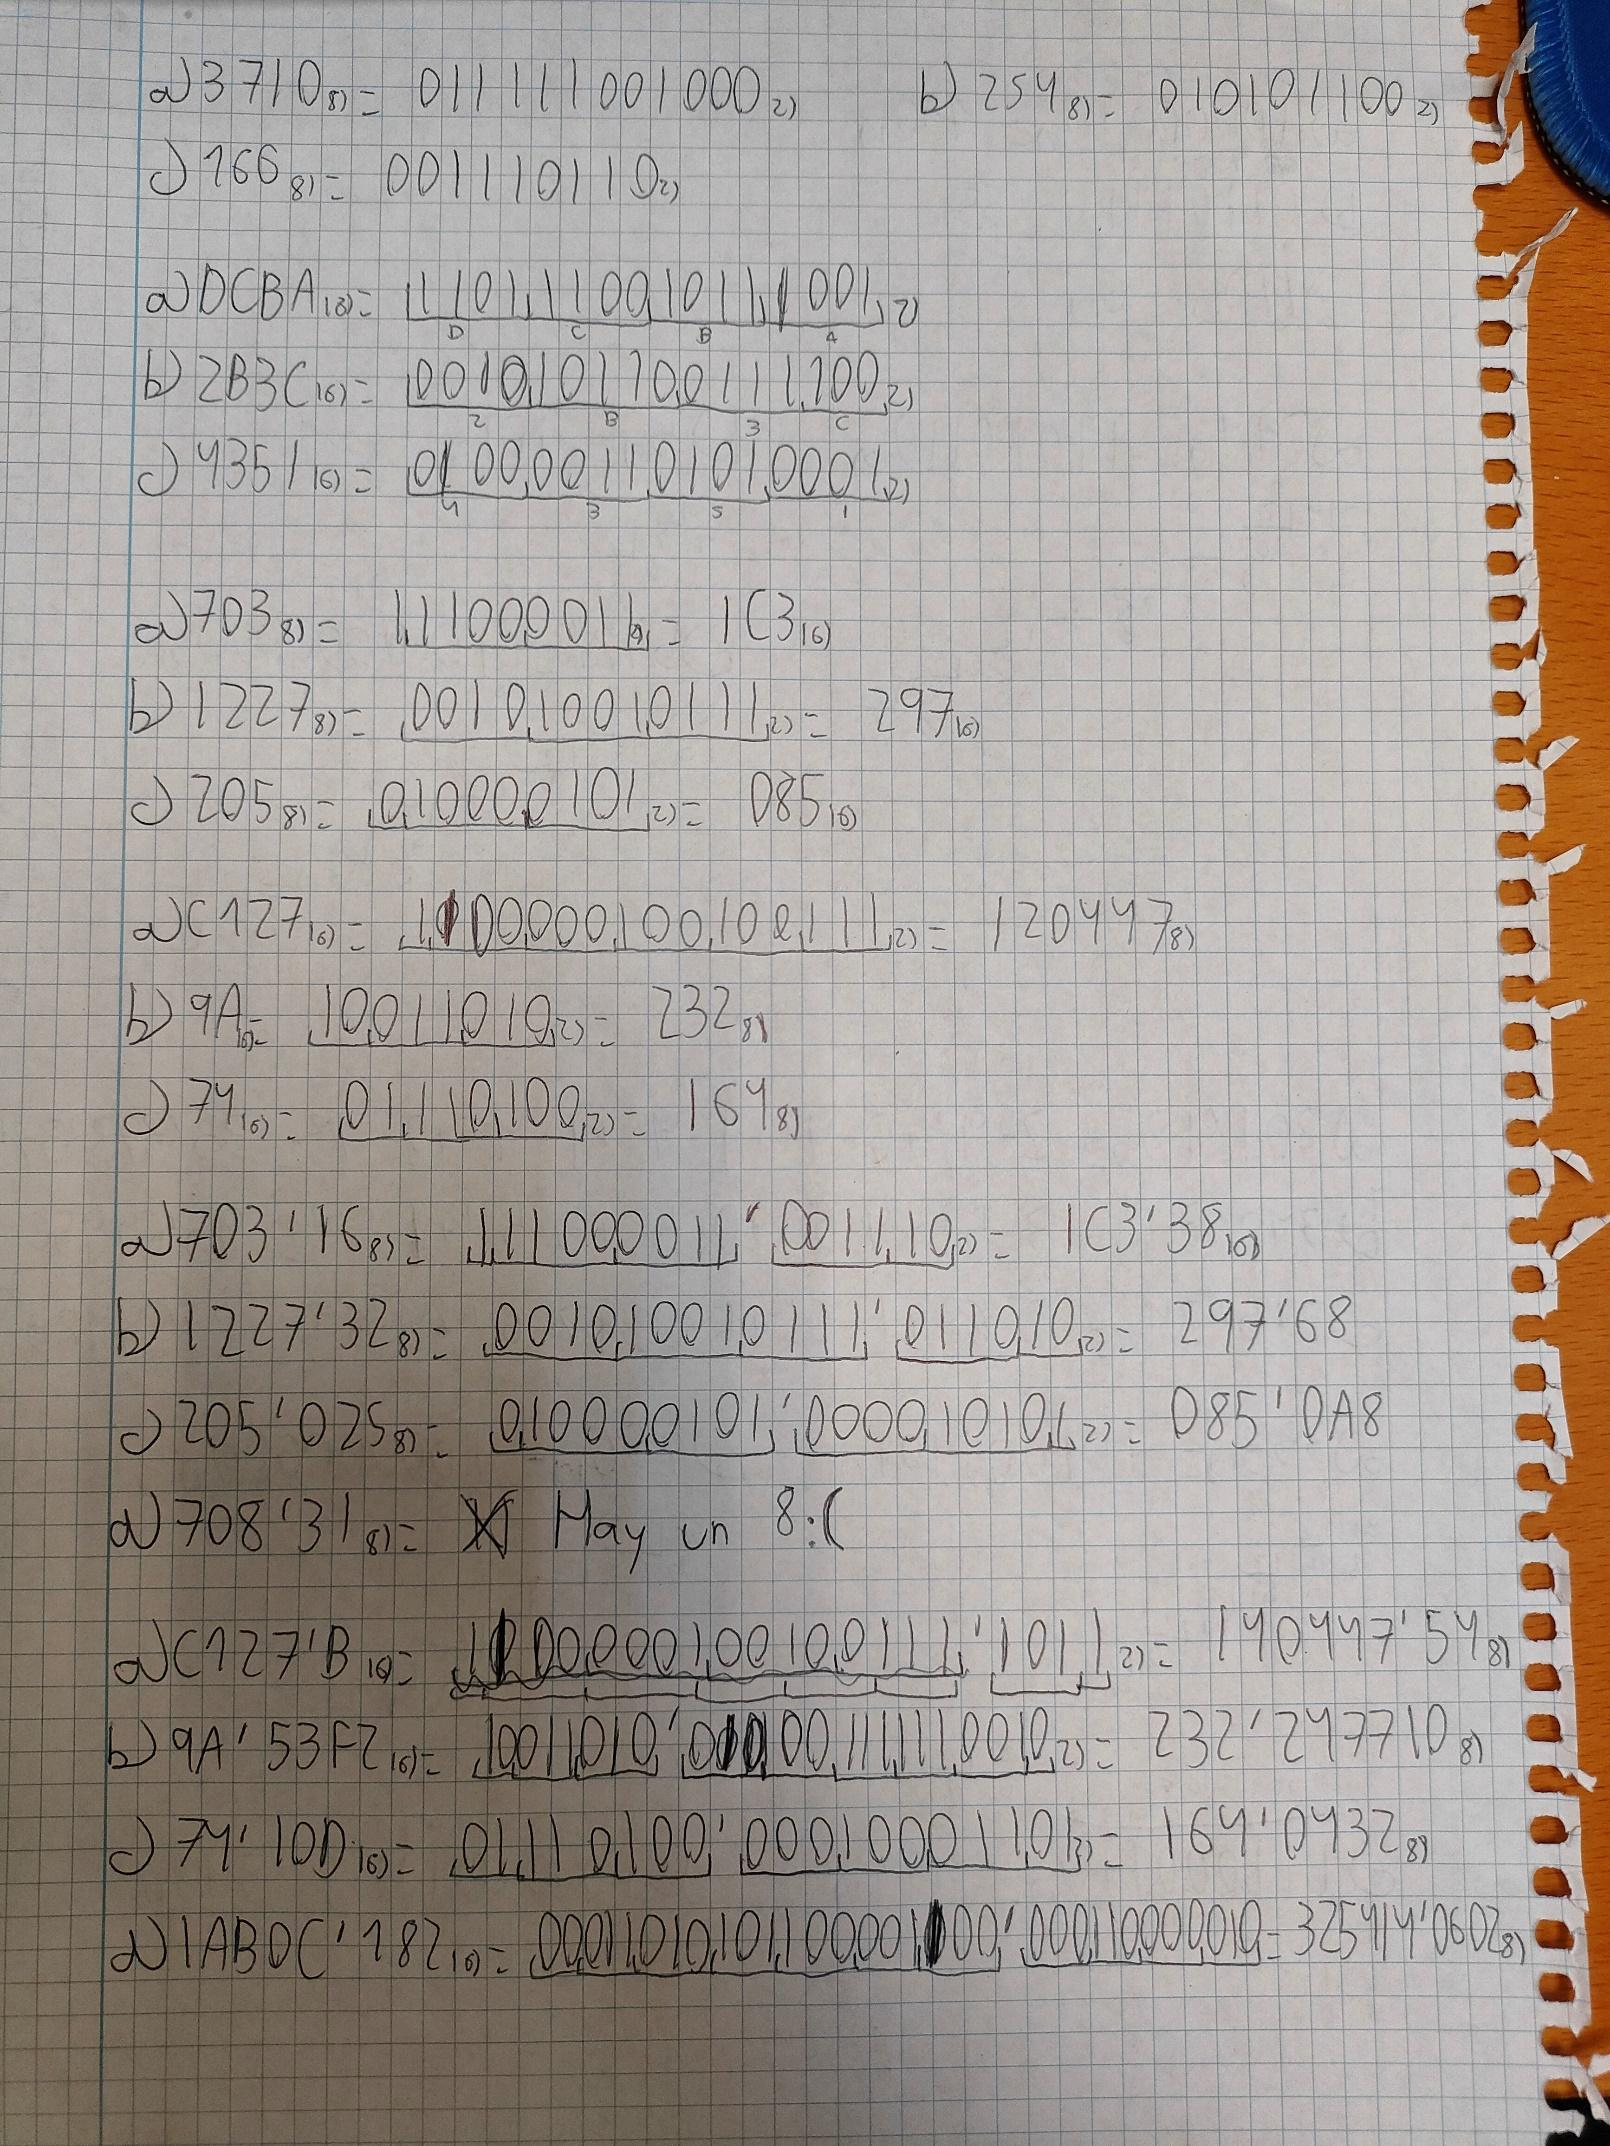 a) 3710 8) = 011111001000 2) b) 254 8) = 010101100 2)
c) 166 8) = 001110110 2)
a) DCBA 16) = 1101110010111001 2)
D C B A
b) 2B3C 16) = 0010101100111100 2)
2 B 3 C
c) 4351 16) = 0100001101010001 2)
4 3 5 1
a) 703 8) = 111000011 2) = 1C3 16)
b) 1227 8) = 001010010111 2) = 297 16)
c) 205 8) = 010000101 2) = 085 16)
a) C127 16) = 1100000100100111 2) = 120447 8)
b) 9A 16) = 10011010 2) = 232 8)
c) 74 16) = 01110100 2) = 164 8)
a) 703'16 8) = 111000011'001110 2) = 1C3'38 16)
b) 1227'32 8) = 001010010111'011010 2) = 297'68
c) 205'025 8) = 010000101'000010101 2) = 085'0A8
a) 708'31 8) = Hay un 8:(
a) C127'B 16) = 1100000100100111'1011 2) = 140447'54 8)
b) 9A'53F2 16) = 10011010'0101001111110010 2) = 232'247710 8)
c) 74'10D 16) = 01110100'000100001101 2) = 164'0432 8)
a) 1AB0C'182 16) = 00011010101100001100'000110000010 = 325414'0602 8)